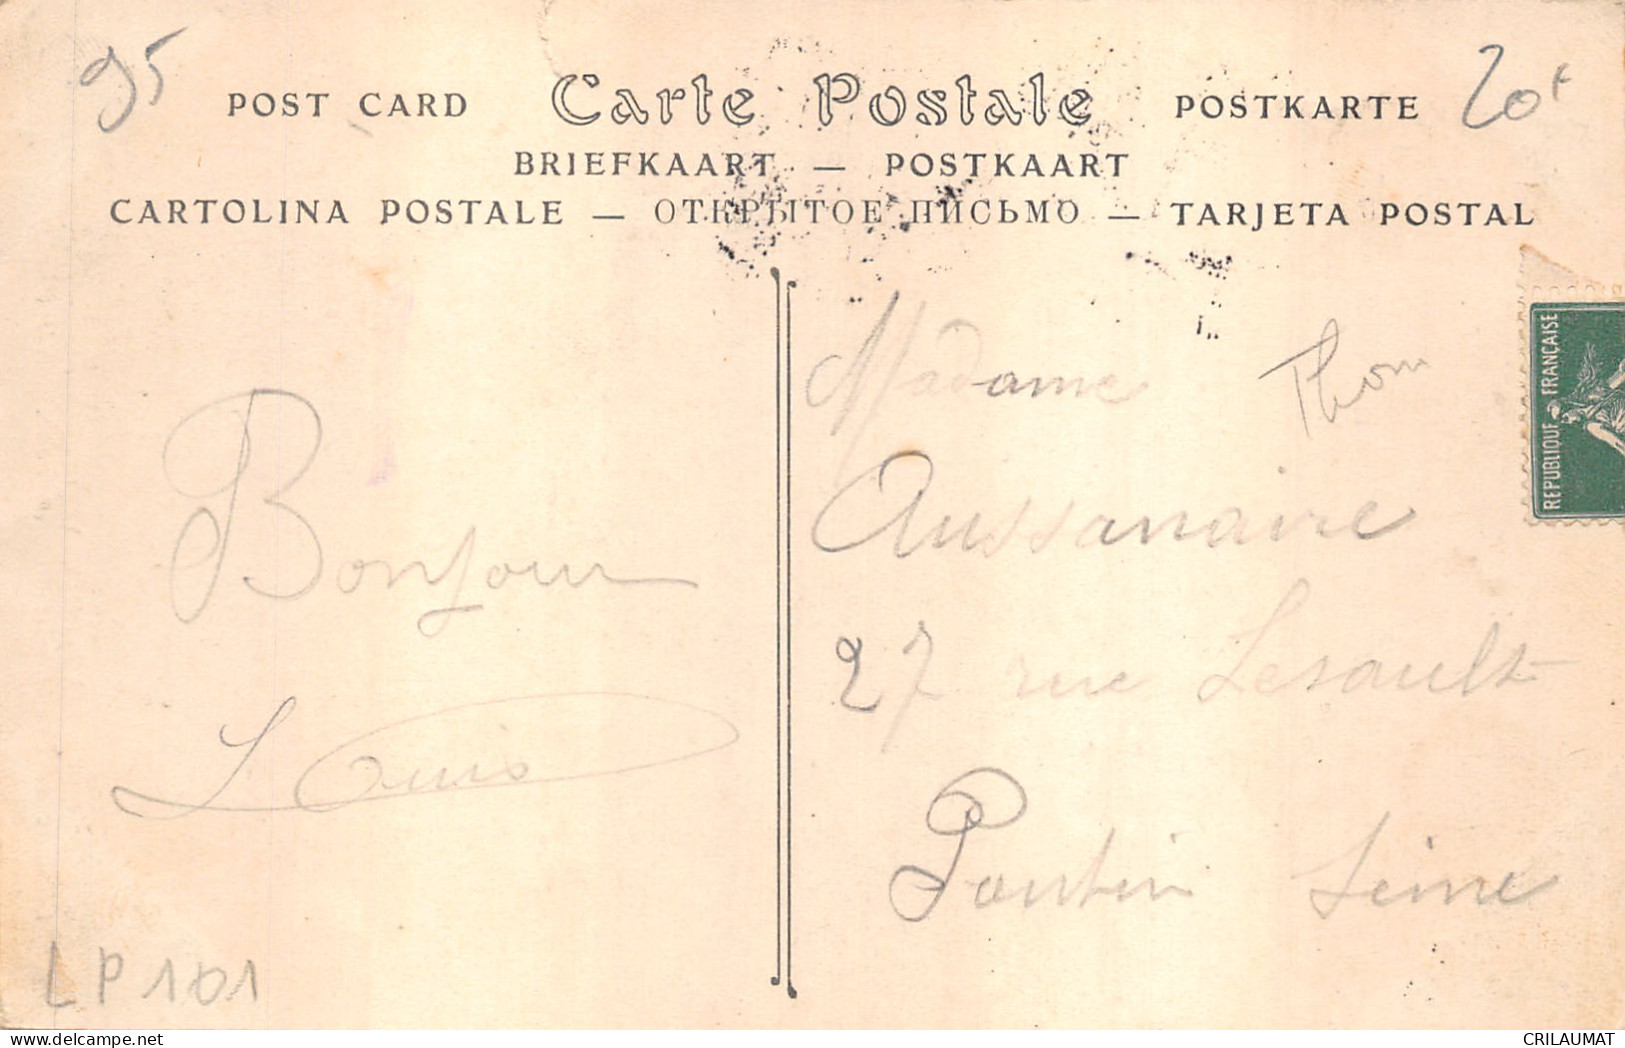 95
POST CARD Carte Postale POSTKARTE 20f
BRIEFKAART — POSTKAART
CARTOLINA POSTALE — ОТКРЫТОЕ ПИСЬМО — TARJETA POSTAL
Bonjour
Louis
Madame Thom
Aussanaire
27 rue Lesault
Pantin Seine
REPUBLIQUE FRANÇAISE
LP101
CRILAUMAT